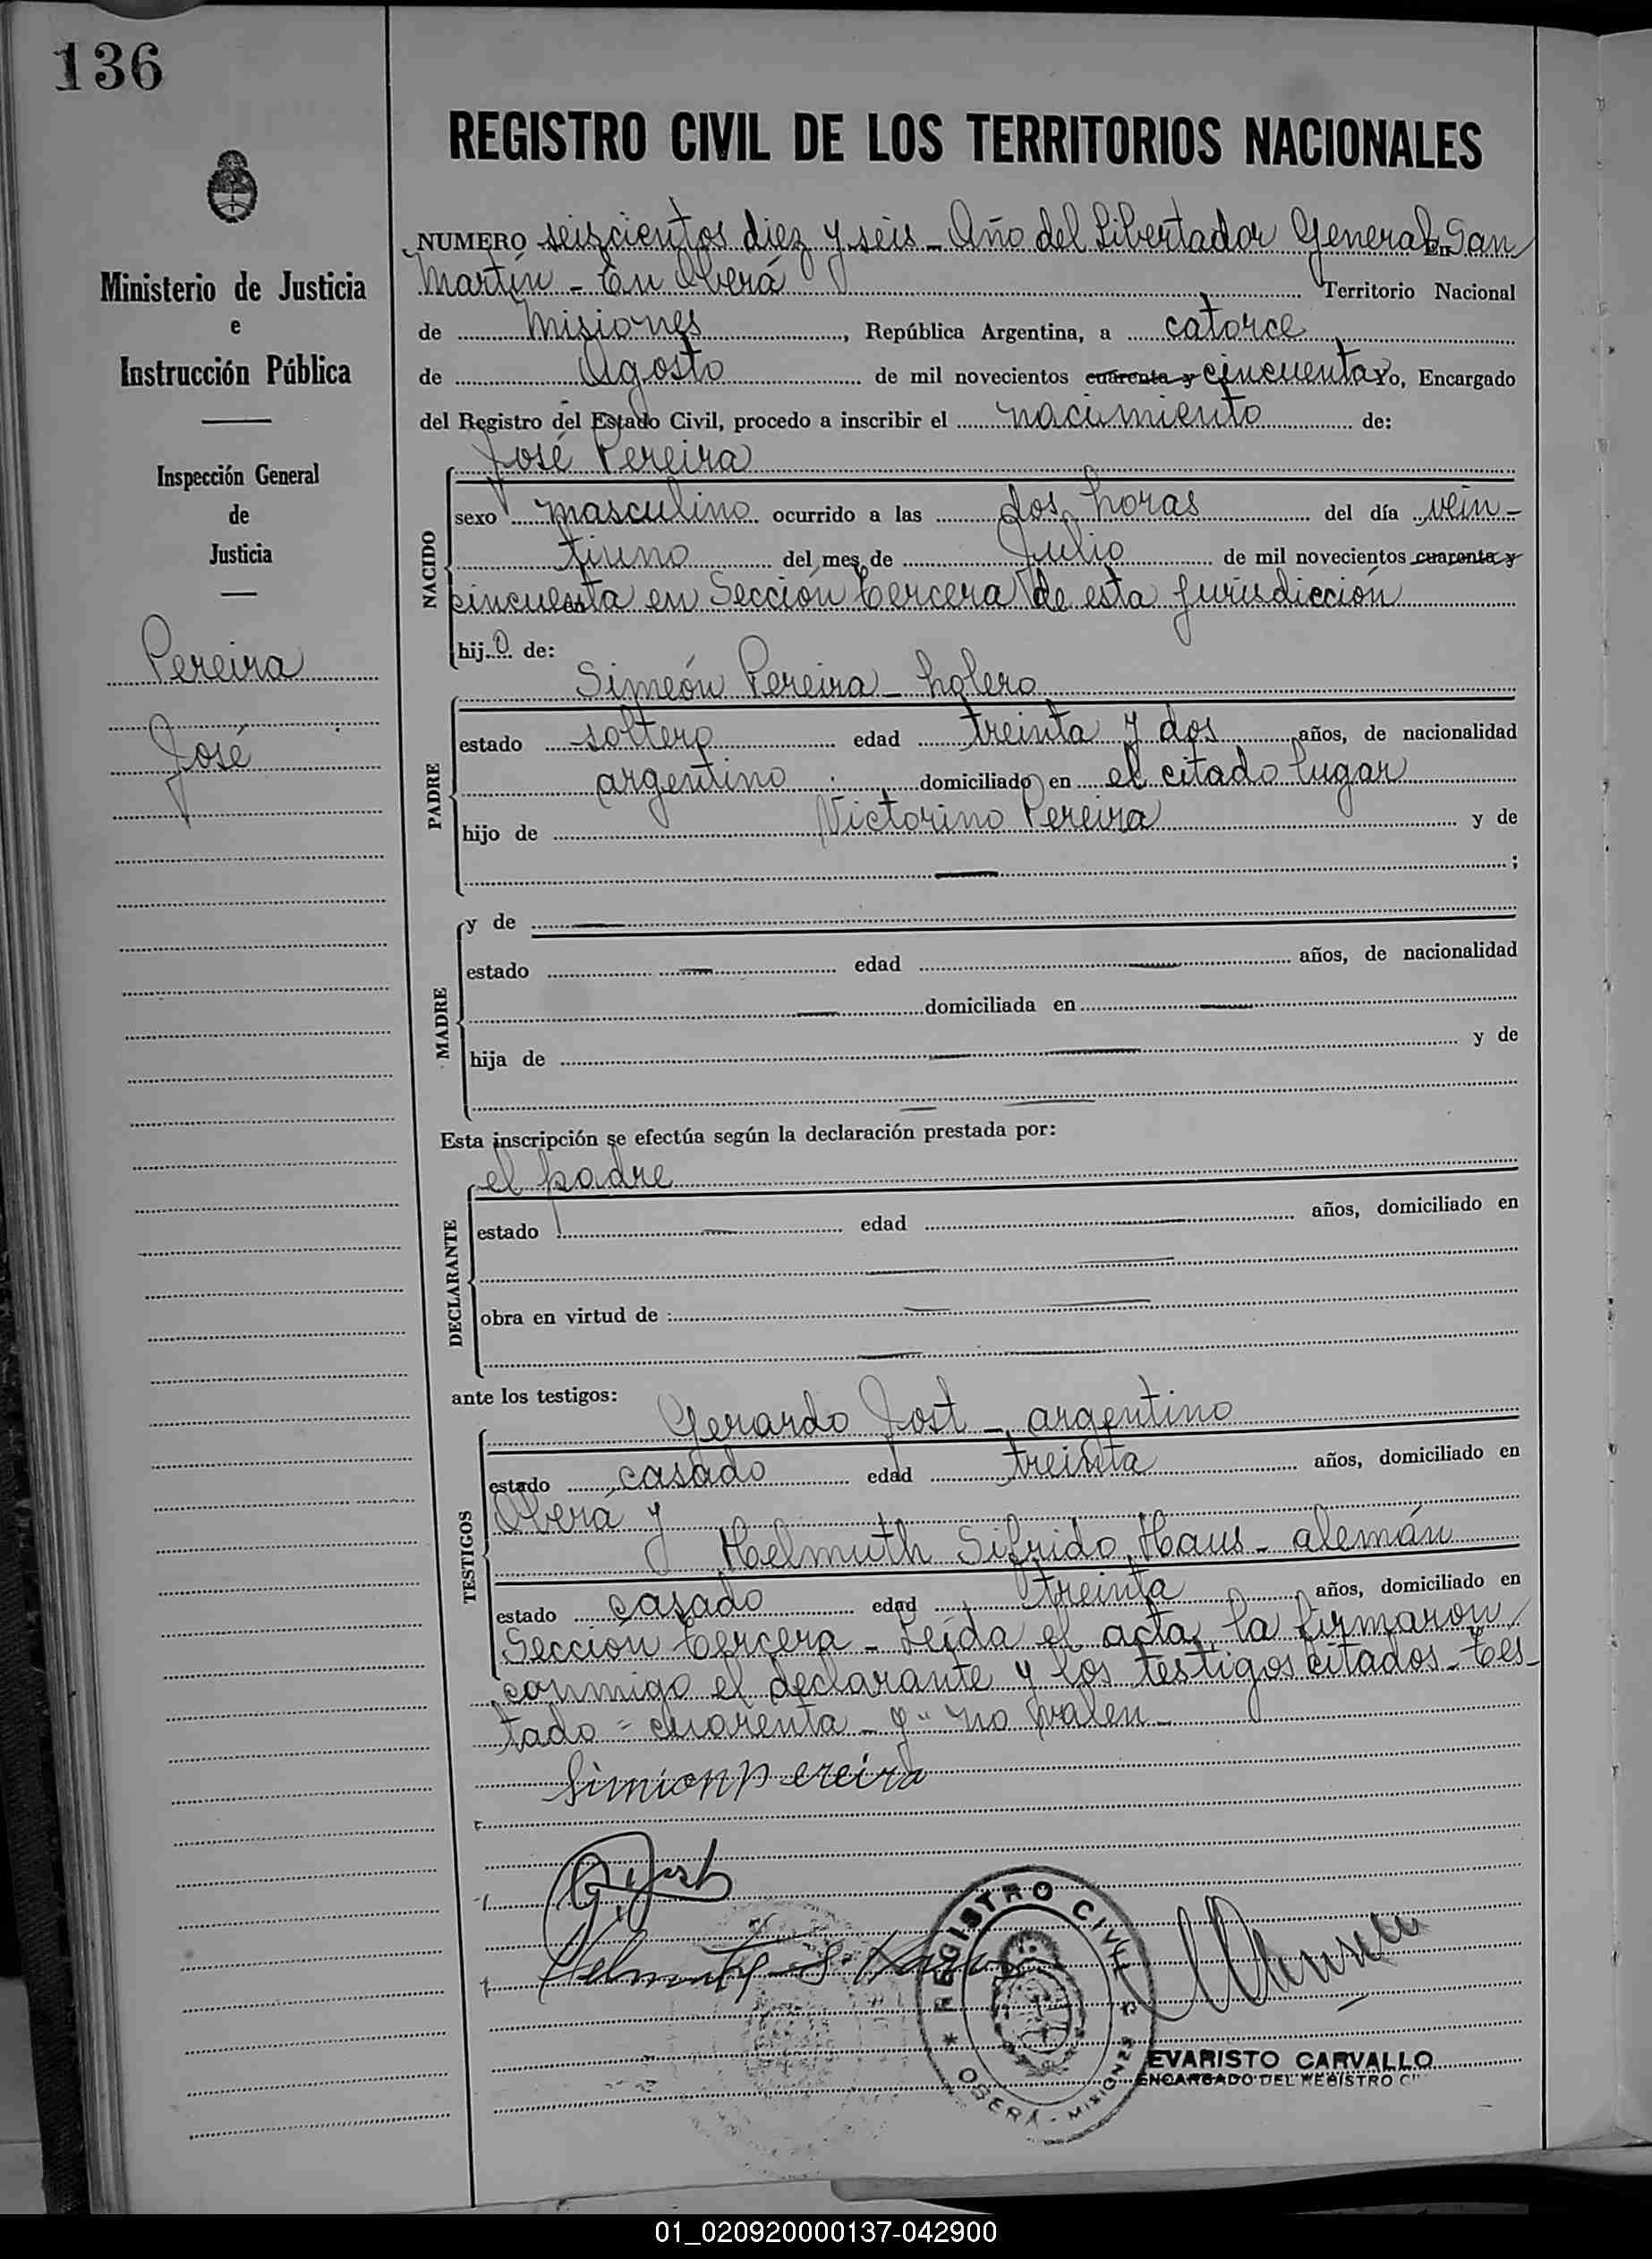 136
REGISTRO CIVIL DE LOS TERRITORIOS NACIONALES
Ministerio de Justicia
e
Instrucción Pública
Inspección General
de
Justicia
Pereira
José
NUMERO seiscientos diez y seis - Año del Libertador General En San
Martín - En Oberá Territorio Nacional
de Misiones, República Argentina, a catorce
de Agosto de mil novecientos cuarenta y cincuenta Yo, Encargado
del Registro del Estado Civil, procedo a inscribir el nacimiento de:
José Pereira
NACIDO
sexo masculino ocurrido a las dos horas del día vein-
tiuno del mes de Julio de mil novecientos cuarenta y
cincuenta en Sección tercera de esta jurisdicción
hijo de:
PADRE
Simeón Pereira -
estado soltero edad treinta y dos años, de nacionalidad
argentino domiciliado en el citado lugar
hijo de Victorino Pereira y de
;
MADRE
y de
estado edad años, de nacionalidad
domiciliada en
hija de y de
Esta inscripción se efectúa según la declaración prestada por:
el padre
DECLARANTE
estado edad años, domiciliado en
obra en virtud de :
ante los testigos:
TESTIGOS
Gerardo Jost - argentino
estado casado edad treinta años, domiciliado en
Oberá y
Helmuth Sifrido Haus - alemán
estado casado edad treinta años, domiciliado en
Sección tercera - Leída el acta, la firmaron
conmigo el declarante y los testigos citados - Tes-
tado = cuarenta - y" no valen -
Simion Pereira
G. Jost
Helmuth S.
REGISTRO CIVIL
OBERÁ - MISIONES
EVARISTO CARVALLO
ENCARGADO DEL REGISTRO
01_020920000137-042900